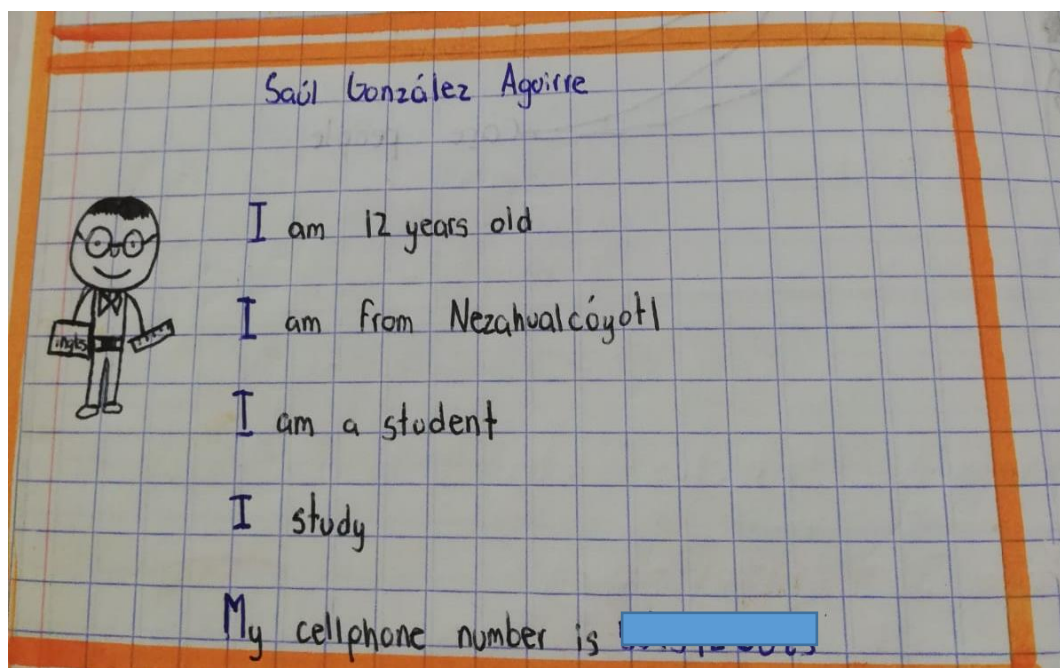 Saúl González Aguirre
I am 12 years old
I am from Nezahualcóyotl
inglés
I am a student
I study
My cellphone number is